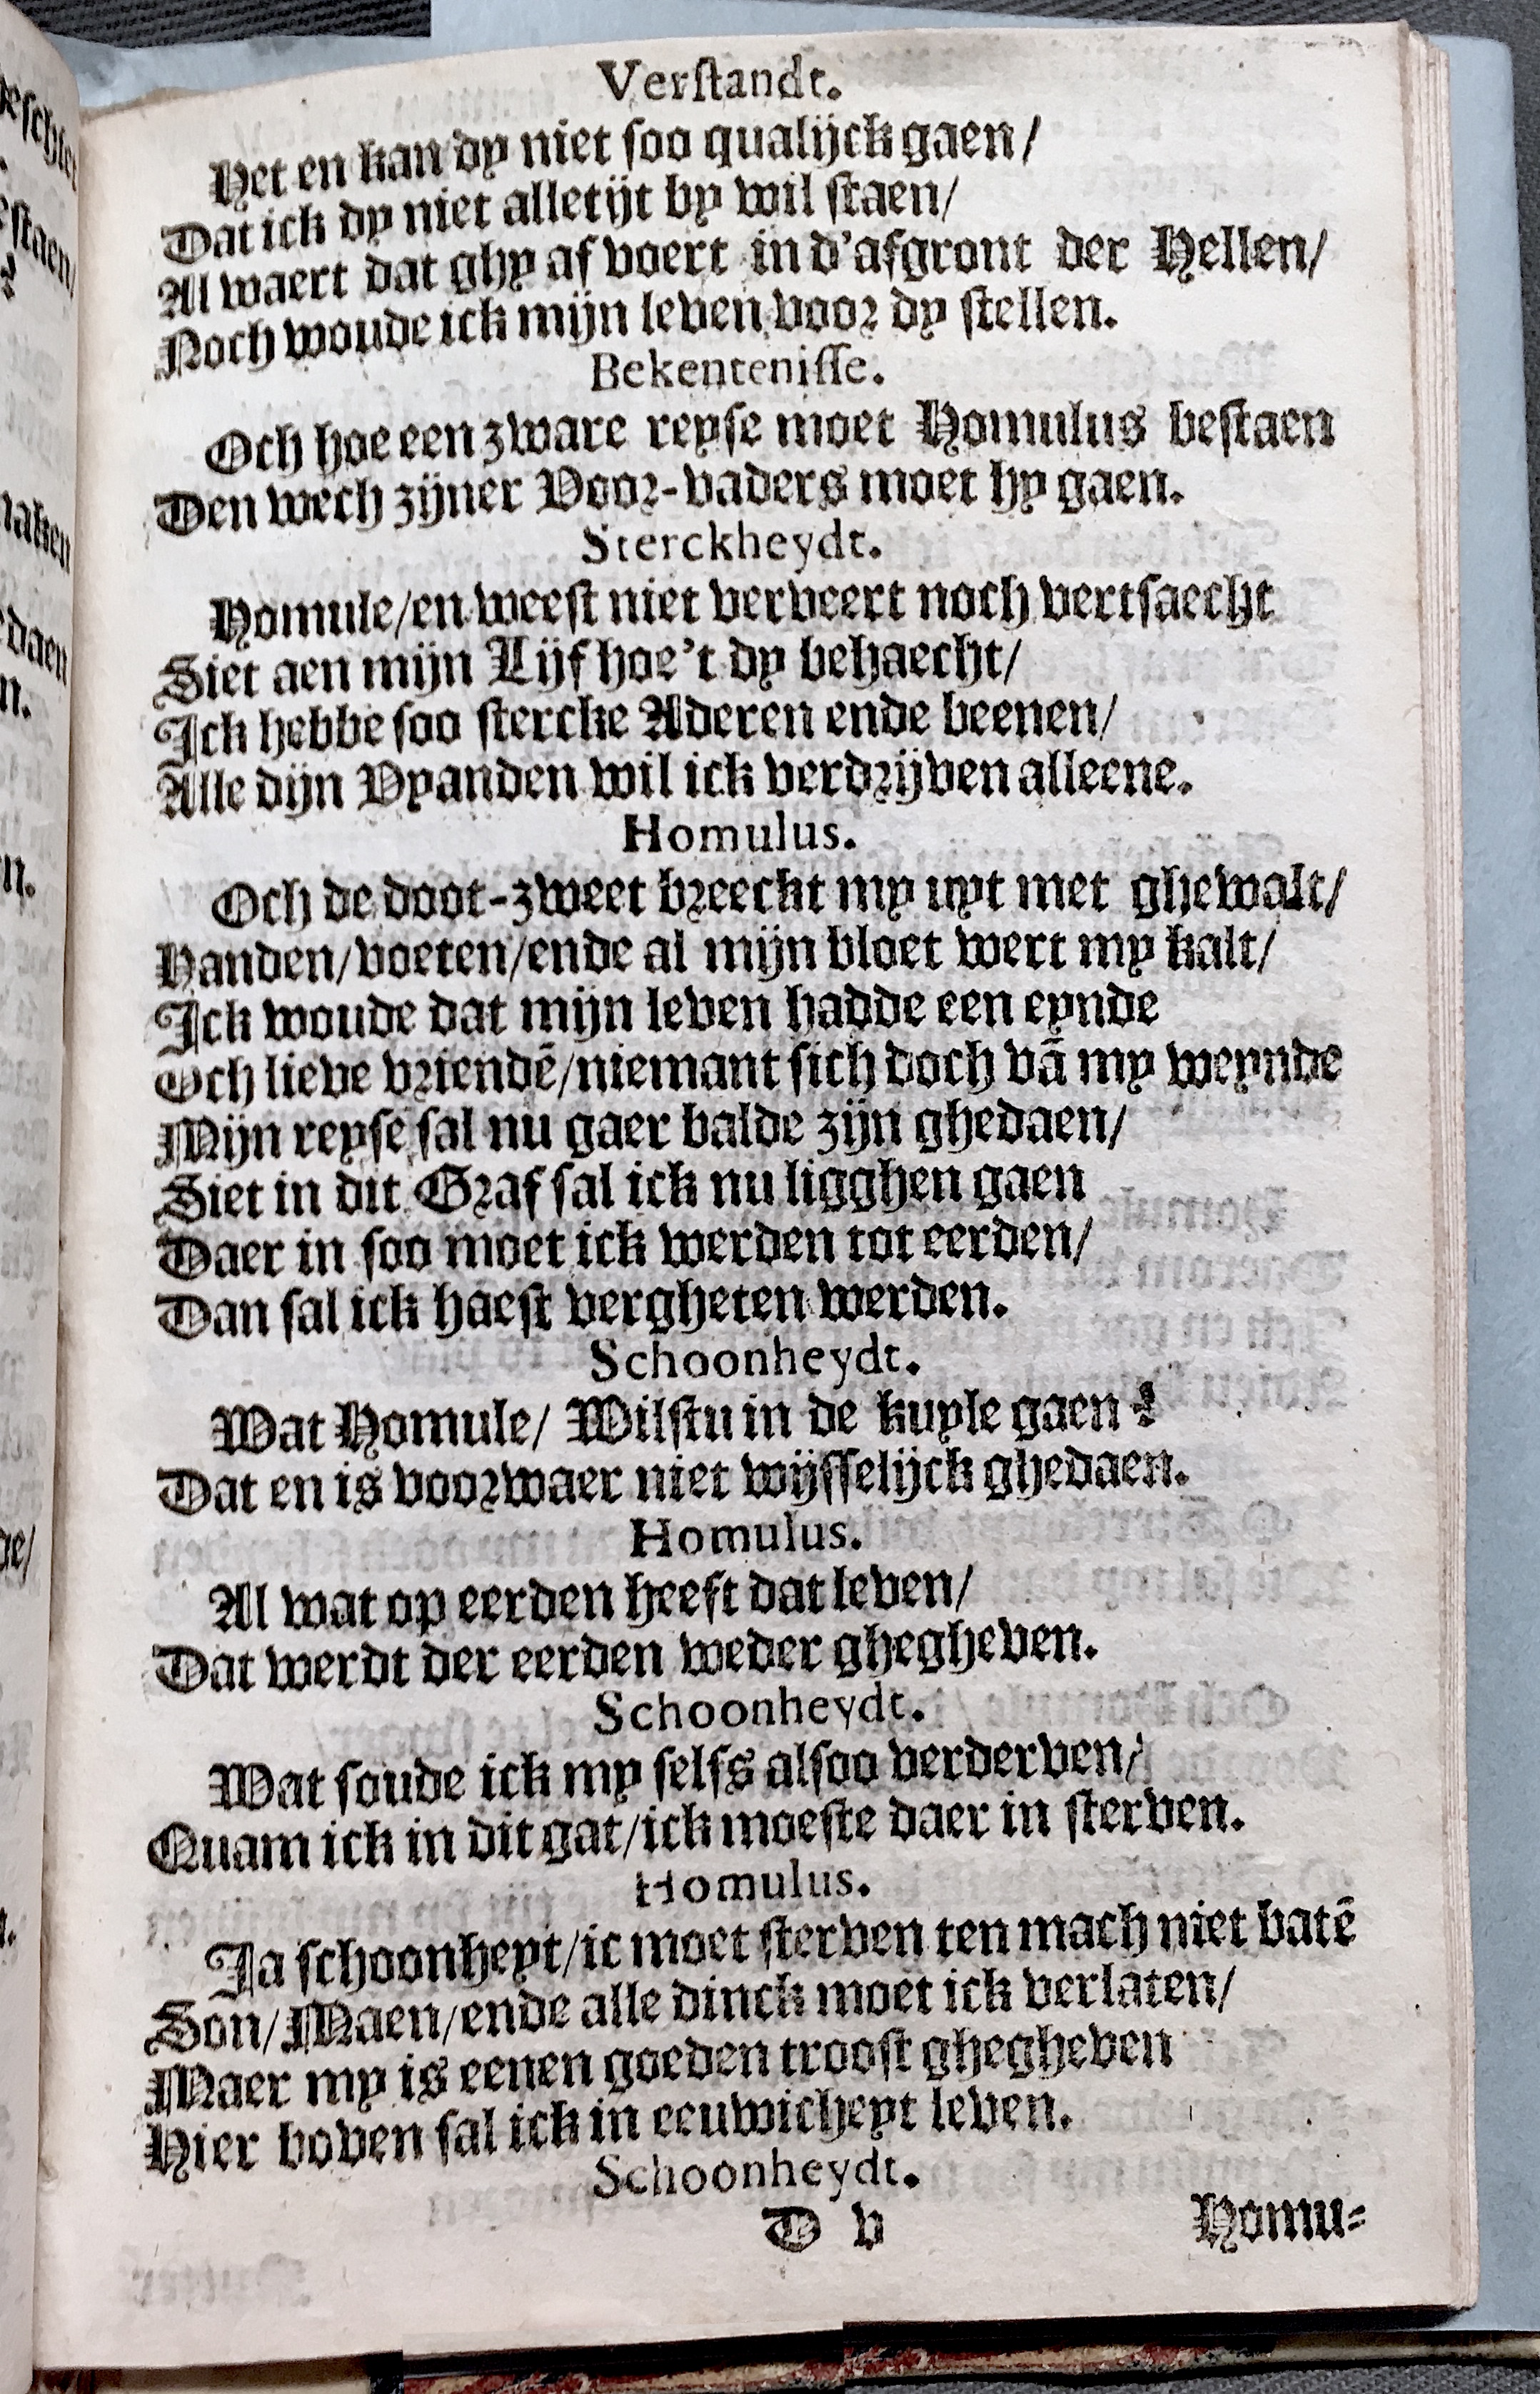 Verstandt.
Het en kan dy niet soo qualijck gaen/
Dat ick dy niet alletijt by wil staen/
Al waert dat ghy af voert in d'afgront der Hellen/
Noch woude ick mijn leven voor dy stellen.
Bekentenisse.
Och hoe een zware reyse moet Homulus bestaen
Den wech zijner Voor-vaders moet hy gaen.
Sterckheydt.
Homule/en weest niet verveert noch vertsaecht
Siet aen mijn Lijf hoe't dy behaecht/
Ick hebbe soo stercke Aderen ende beenen/
Alle dijn Vyanden wil ick verdrijven alleene.
Homulus.
Och de doot-zweet breeckt my uyt met ghewalt/
Handen/voeten/ende al mijn bloet wert my kalt/
Ick woude dat mijn leven hadde een eynde
Och lieve vriendē/niemant sich doch vā my weynde
Mijn reyse sal nu gaer balde zijn ghedaen/
Siet in dit Graf sal ick nu ligghen gaen
Daer in soo moet ick werden tot eerden/
Dan sal ick haest vergheten werden.
Schoonheydt.
Wat Homule/ Wilstu in de kuyle gaen?
Dat en is voorwaer niet wijsselijck ghedaen.
Homulus.
Al wat op eerden heeft dat leven/
Dat werdt der eerden weder ghegheven.
Schoonheydt.
Wat soude ick my selfs alsoo verderven/
Quam ick in dit gat/ick moeste daer in sterven.
Homulus.
Ja schoonheyt/ic moet sterven ten mach niet batē
Son/Maen/ende alle dinck moet ick verlaten/
Maer my is eenen goeden troost ghegheven
Hier boven sal ick in eeuwicheyt leven.
Schoonheydt.
D v Homu-